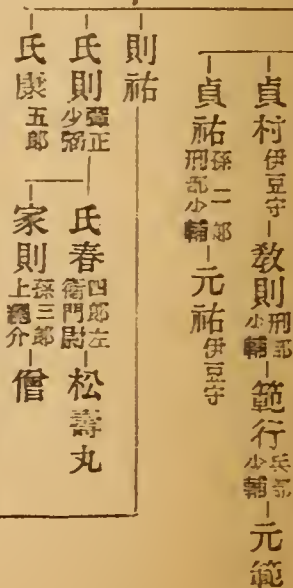 貞村 伊豆守 教則 刑部少輔 範行 兵部少輔 元範
貞祐 孫二郎 刑部少輔 元祐 伊豆守
則祐
氏則 彈正少弼 氏春 四郎左衞門尉 松壽丸
家則 孫三郎 上總介 僧
氏康 五郎